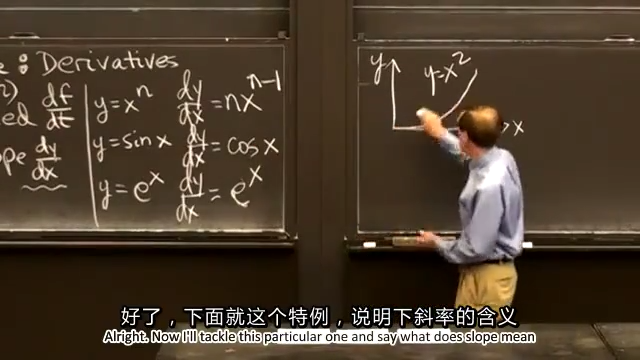 : Derivatives
df/dt
y=xⁿ dy/dx = nxⁿ⁻¹
y=sin x dy/dx = cos x
dy/dx
y=eˣ dy/dx = eˣ
y
y=x²
x
好了，下面就这个特例，说明下斜率的含义
Alright. Now I'll tackle this particular one and say what does slope mean